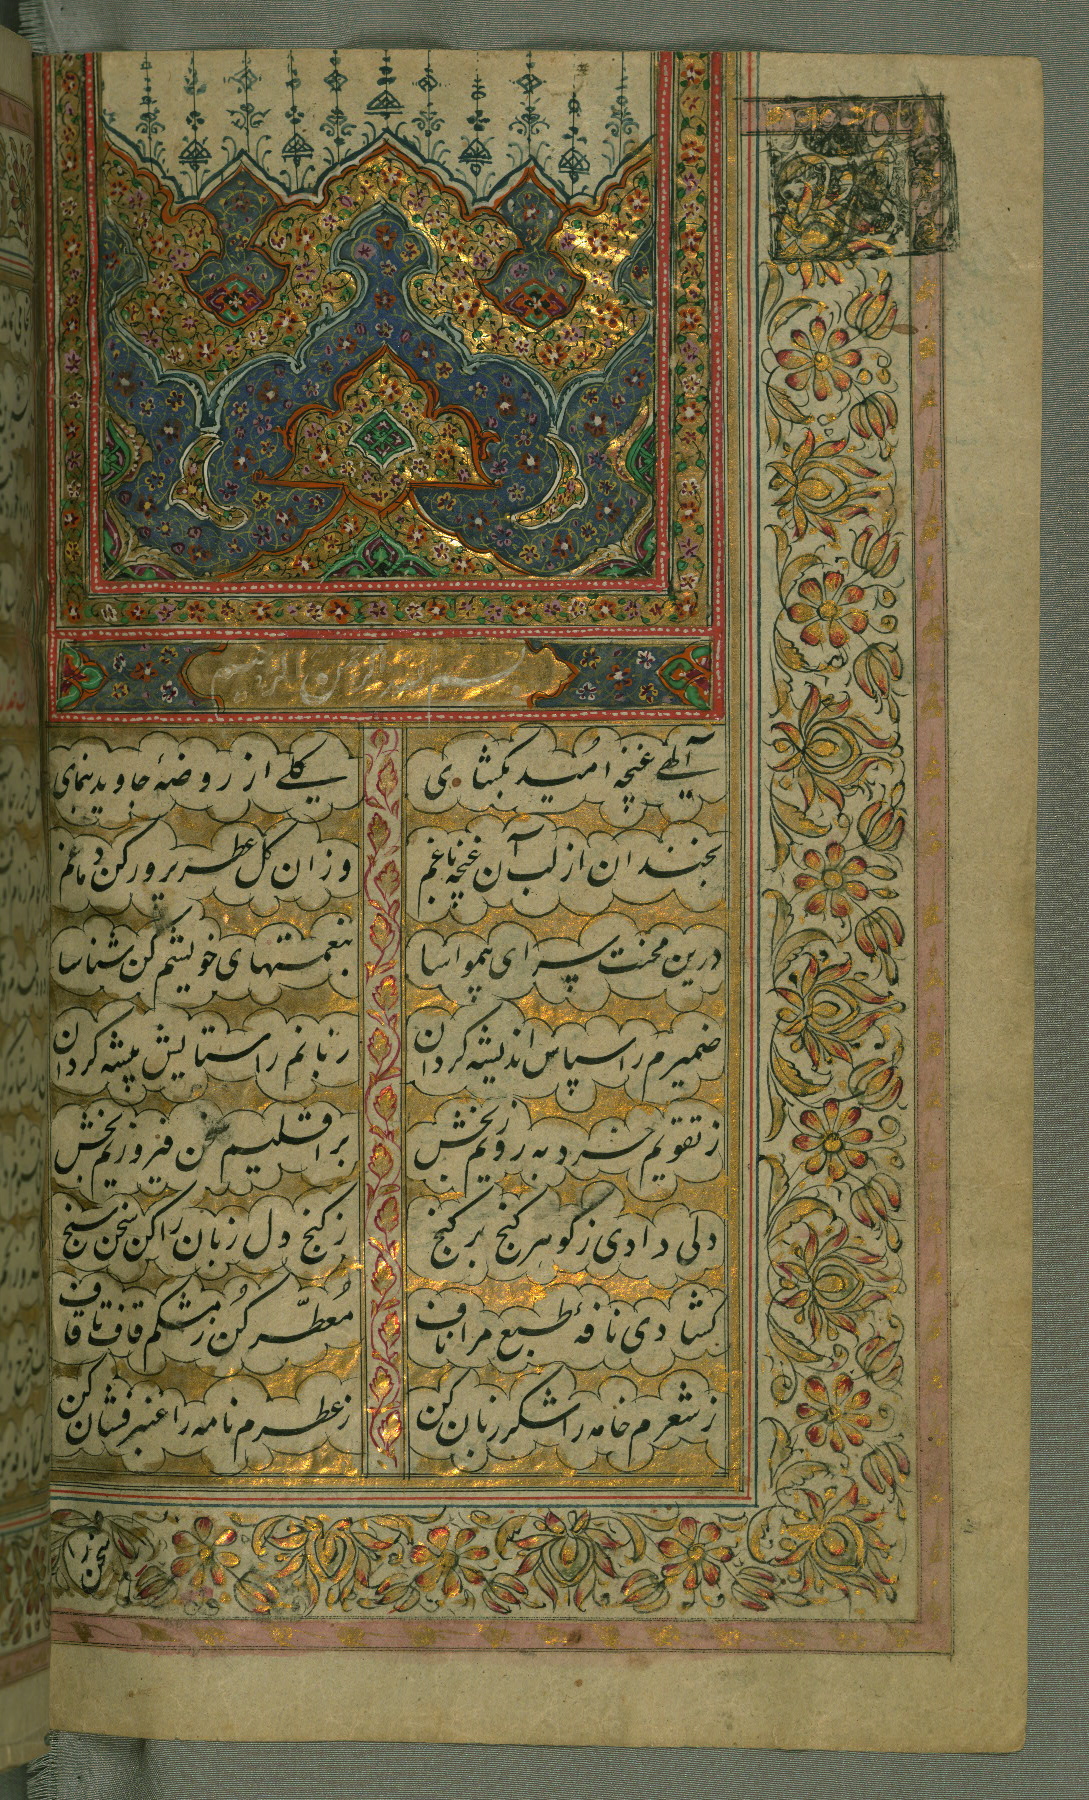 بسم الله الرحمن الرحیم
آلهی غنچهٔ امید بکشای گلی از روضهٔ جاوید بنمای
بخندان از لب آن غنچه باغم وزان گل عطرپرور کن دماغم
درین محنت سرای بیمواسا بنعمتهای خویشم کن شناسا
ضمیرم را سپاس اندیشه کردان زبانم را ستایش پیشه کردان
ز تقویم خرد بهروزیم بخش بر اقلیم سخن فیروزیم بخش
دلی دادی ز گوهر کنج بر کنج ز کنج دل زبان را کن سخن سنج
کشادی نافهٔ طبع مرا ناف مُعطّر کُن ز مشکم قاف تا قاف
ز شعرم خامه را شکر زبان کن ز عطرم نامه را عنبر فشان کن
سخن ز